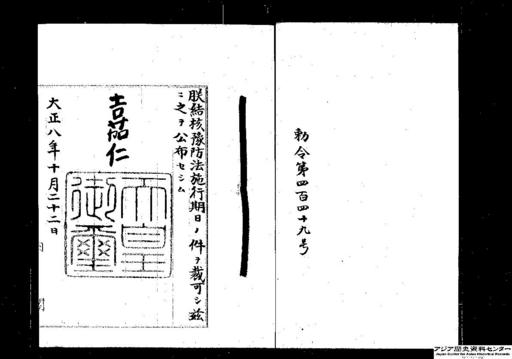 勅令第四百四十九号
朕結核豫防法施行期日ノ件ヲ裁可シ茲
ニ之ヲ公布セシム
嘉仁
天皇
御璽
大正八年十月二十二日
アジア歴史資料センター
Japan Center for Asian Historical Records